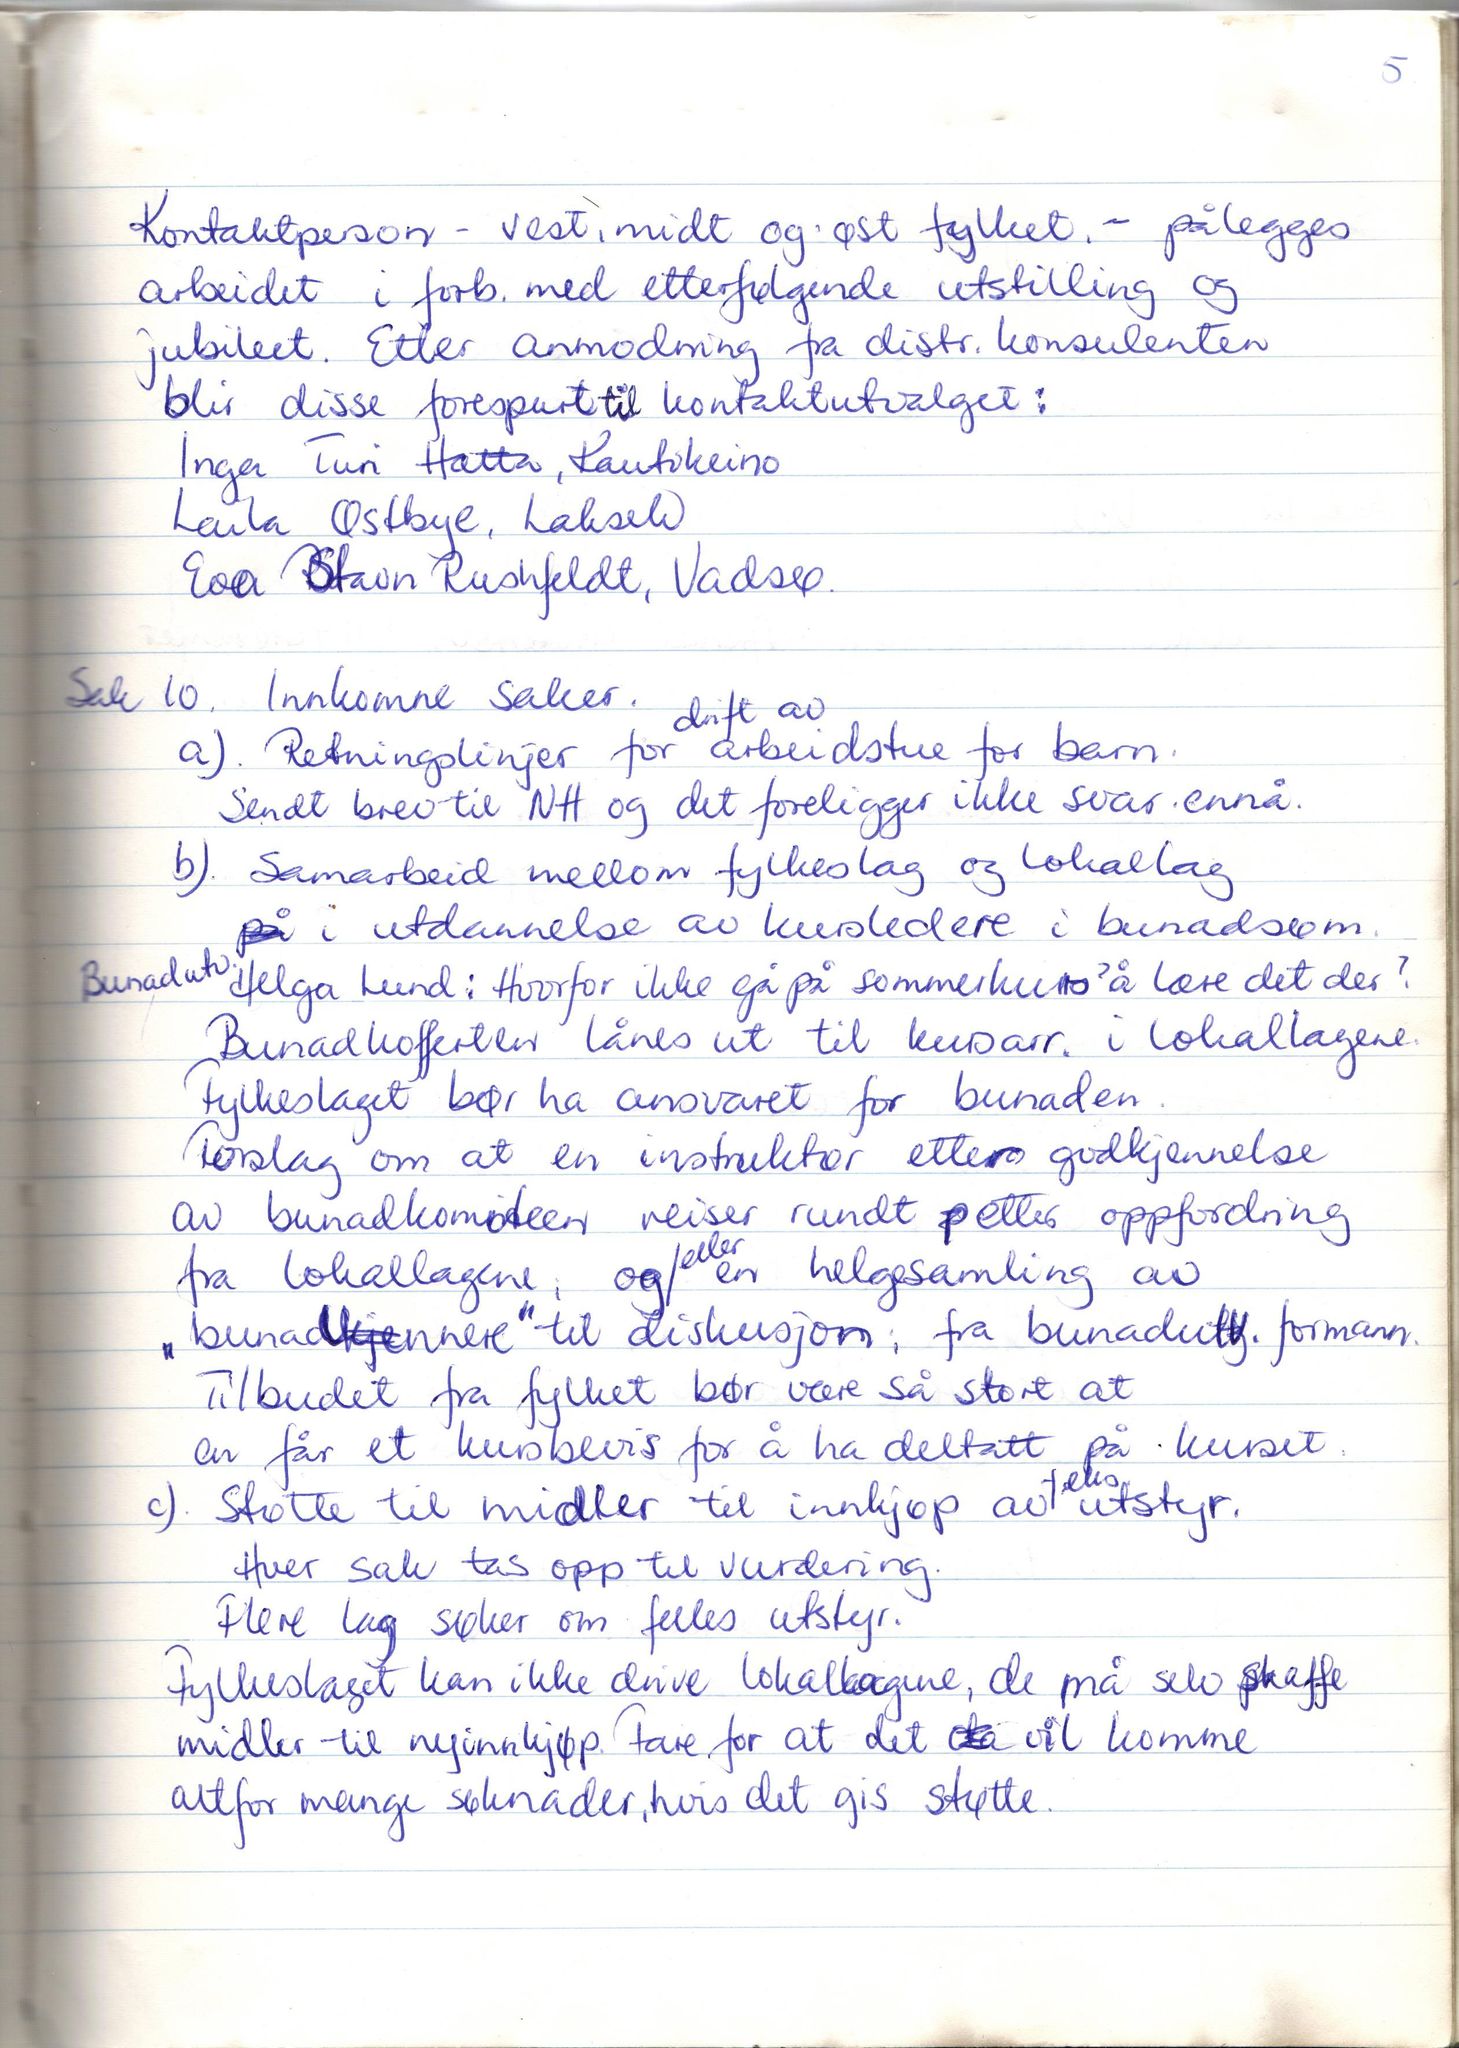 5
Kontaktperson - vest, midt og øst fylket. - pålegges
arbeidet i forb. med etterfølgende utstilling og
jubileet. Etter anmodning fra distr. konsulenten
blir disse forespurt til kontaktutvalget:
Inga Turi Hætta, Kautokeino
Laila Østbye, Lakselv
Eva Rushfeldt, Vadsø.
Sak 10. Innkomne saker.
a). Retningslinjer for drift av arbeidstue for barn.
Sendt brev til NH og det foreligger ikke svar ennå.
b). Samarbeid mellom fylkeslag og lokallag
på i utdannelse av kursledere i bunadsøm.
Bunadutv. Helga Lund: Hvorfor ikke gå på sommerkurs? å lære det der?
Bunadkofferten lånes ut til kursarr. i lokallagene.
Fylkeslaget bør ha ansvaret for bunaden.
Forslag om at en instruktør etter godkjennelse
av bunadkomiteen reiser rundt etter oppfordring
fra lokallagene, og/eller en helgesamling av
"bunadkjennere" til diskusjon, fra bunadutv. formann.
Tilbudet fra fylket bør være så stort at
en får et kursbevis for å ha deltatt på kurset.
c). Støtte til midler til innkjøp av f.eks utstyr.
Hver sak tas opp til vurdering.
Flere lag søker om felles utstyr.
Fylkeslaget kan ikke drive lokallagene, de må selv skaffe
midler til nyinnkjøp. Fare for at det da vil komme
altfor mange søknader, hvis det gis støtte.